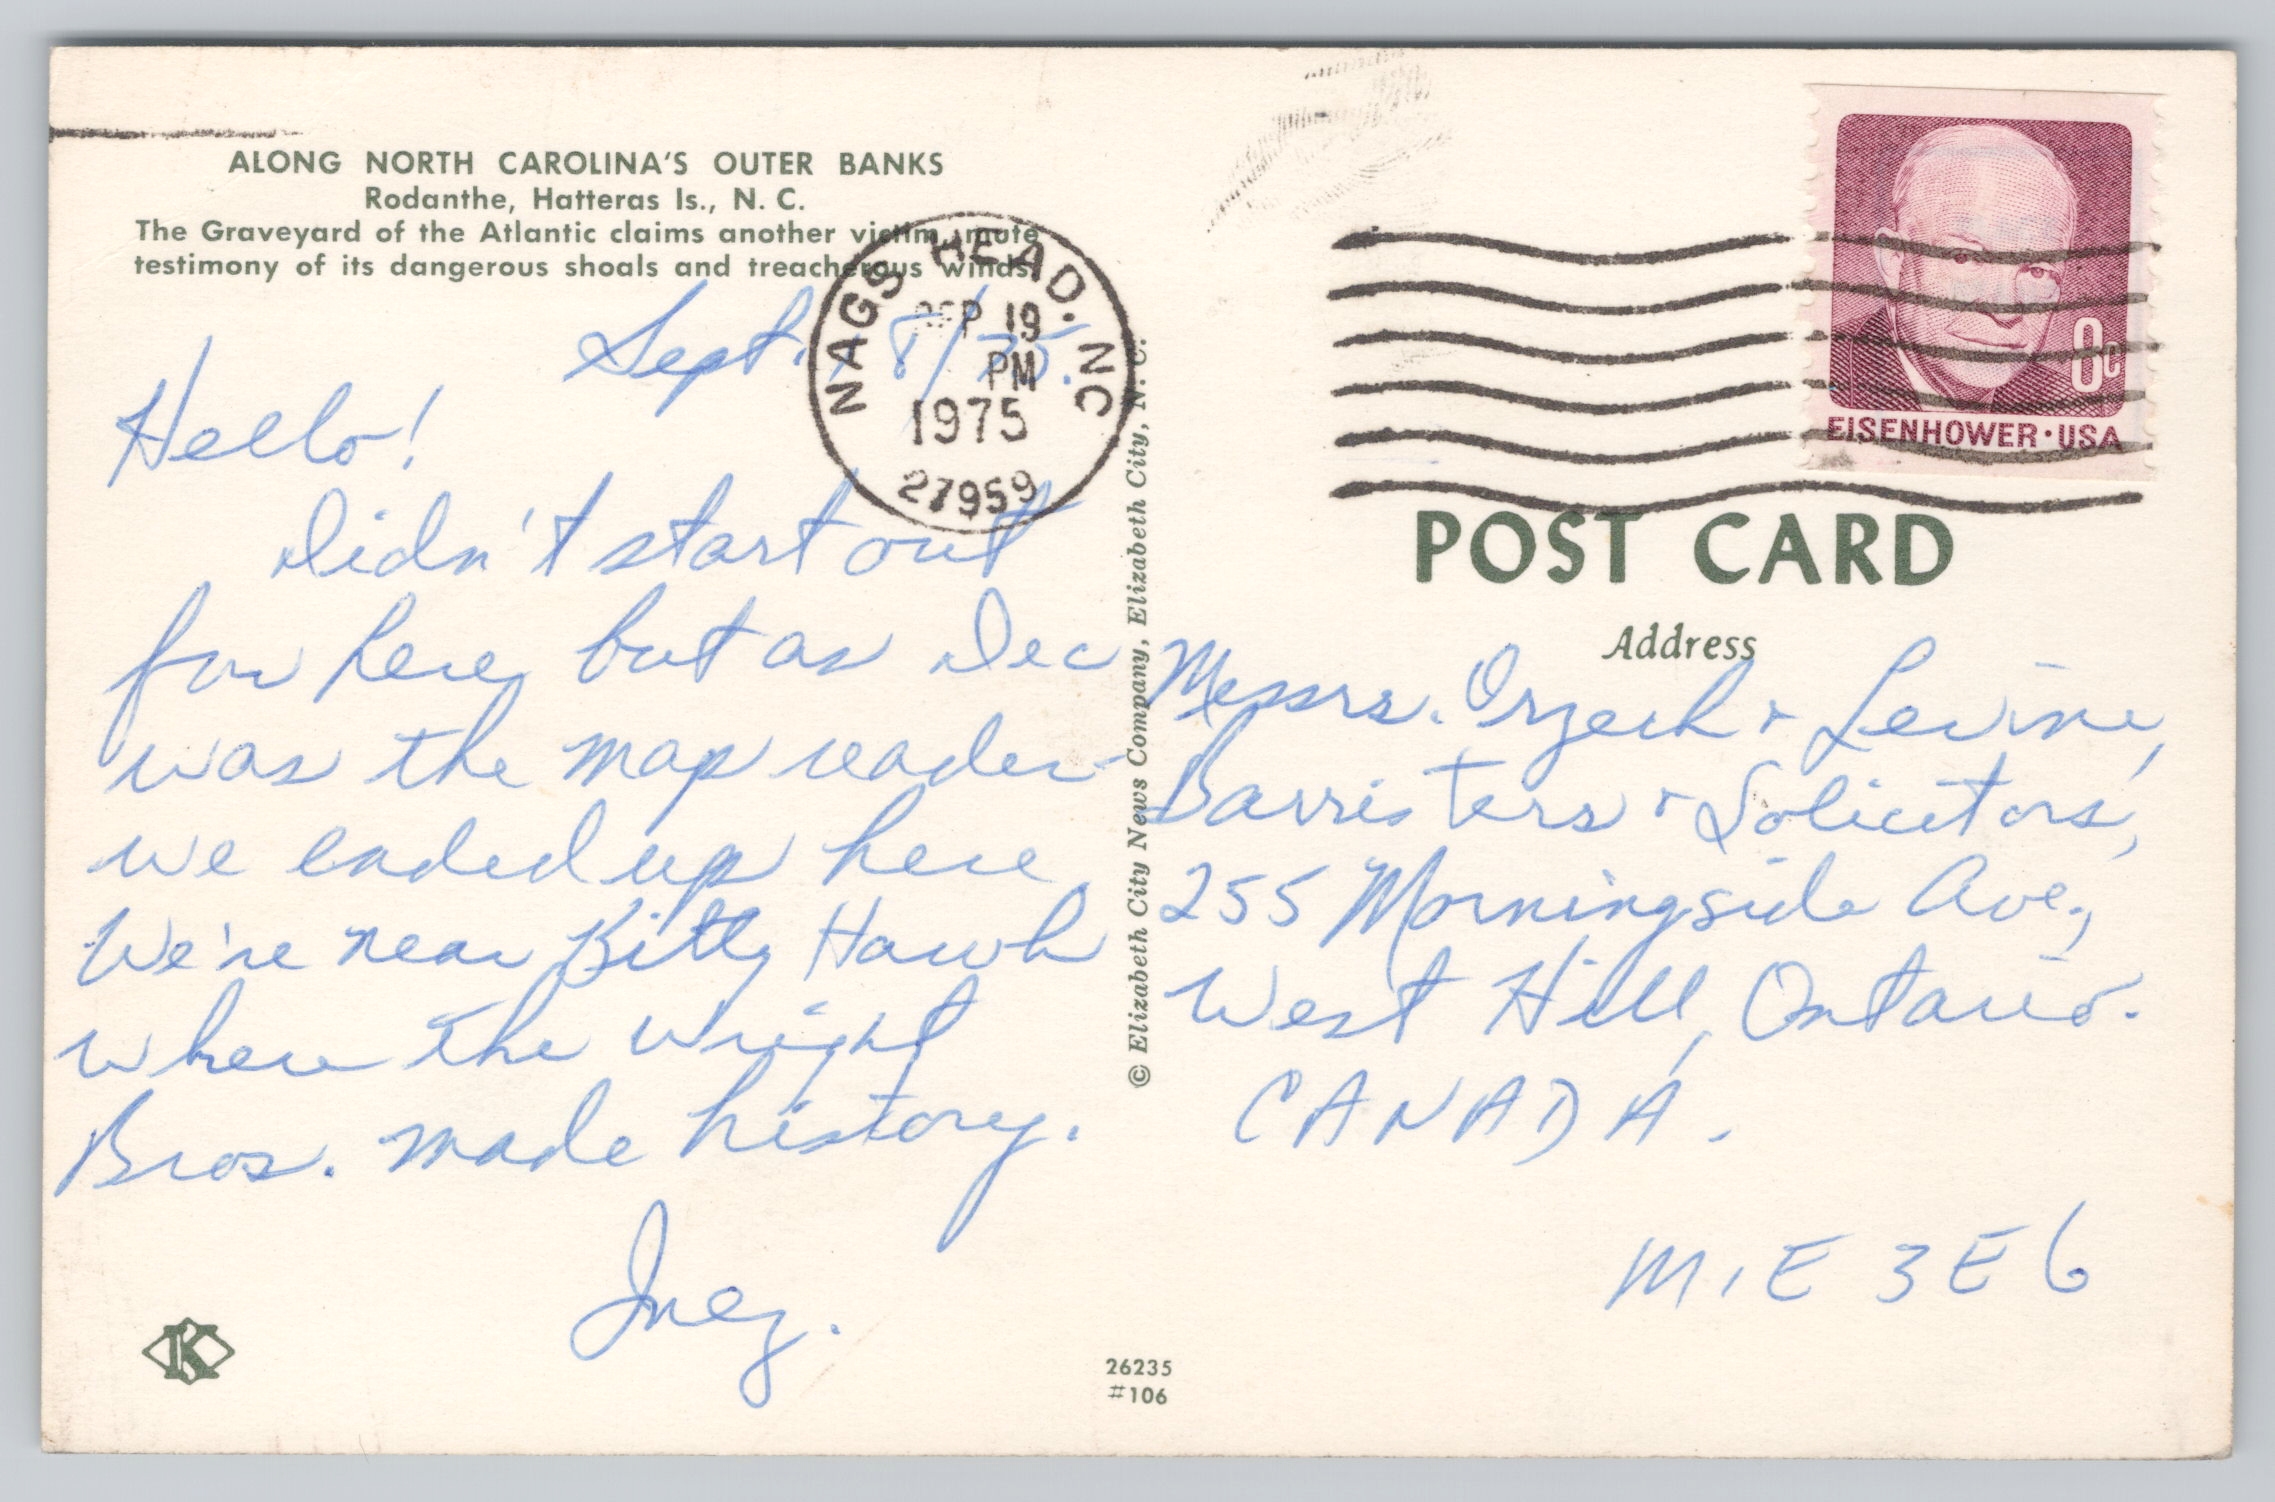 ALONG NORTH CAROLINA'S OUTER BANKS
Rodanthe, Hatteras Is., N. C.
The Graveyard of the Atlantic claims another victim, mute
testimony of its dangerous shoals and treacherous winds.
NAGS HEAD. NC
SEP 19
PM
1975
27959
Sept. 18/75.
Hello!
Didn't start out
for here, but as Dec
was the map reader
we ended up here.
We're near Kitty Hawk
where the Wright
Bros. made history.
Inez.
K
© Elizabeth City News Company, Elizabeth City, N. C.
26235
#106
8c
EISENHOWER·USA
POST CARD
Address
Messrs. Orzech & Levine,
Barristers & Solicitors,
255 Morningside Ave.,
West Hill, Ontario.
CANADA.
M1E 3E6